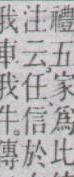 禮五家為比
注云任信於
我車我牛傳